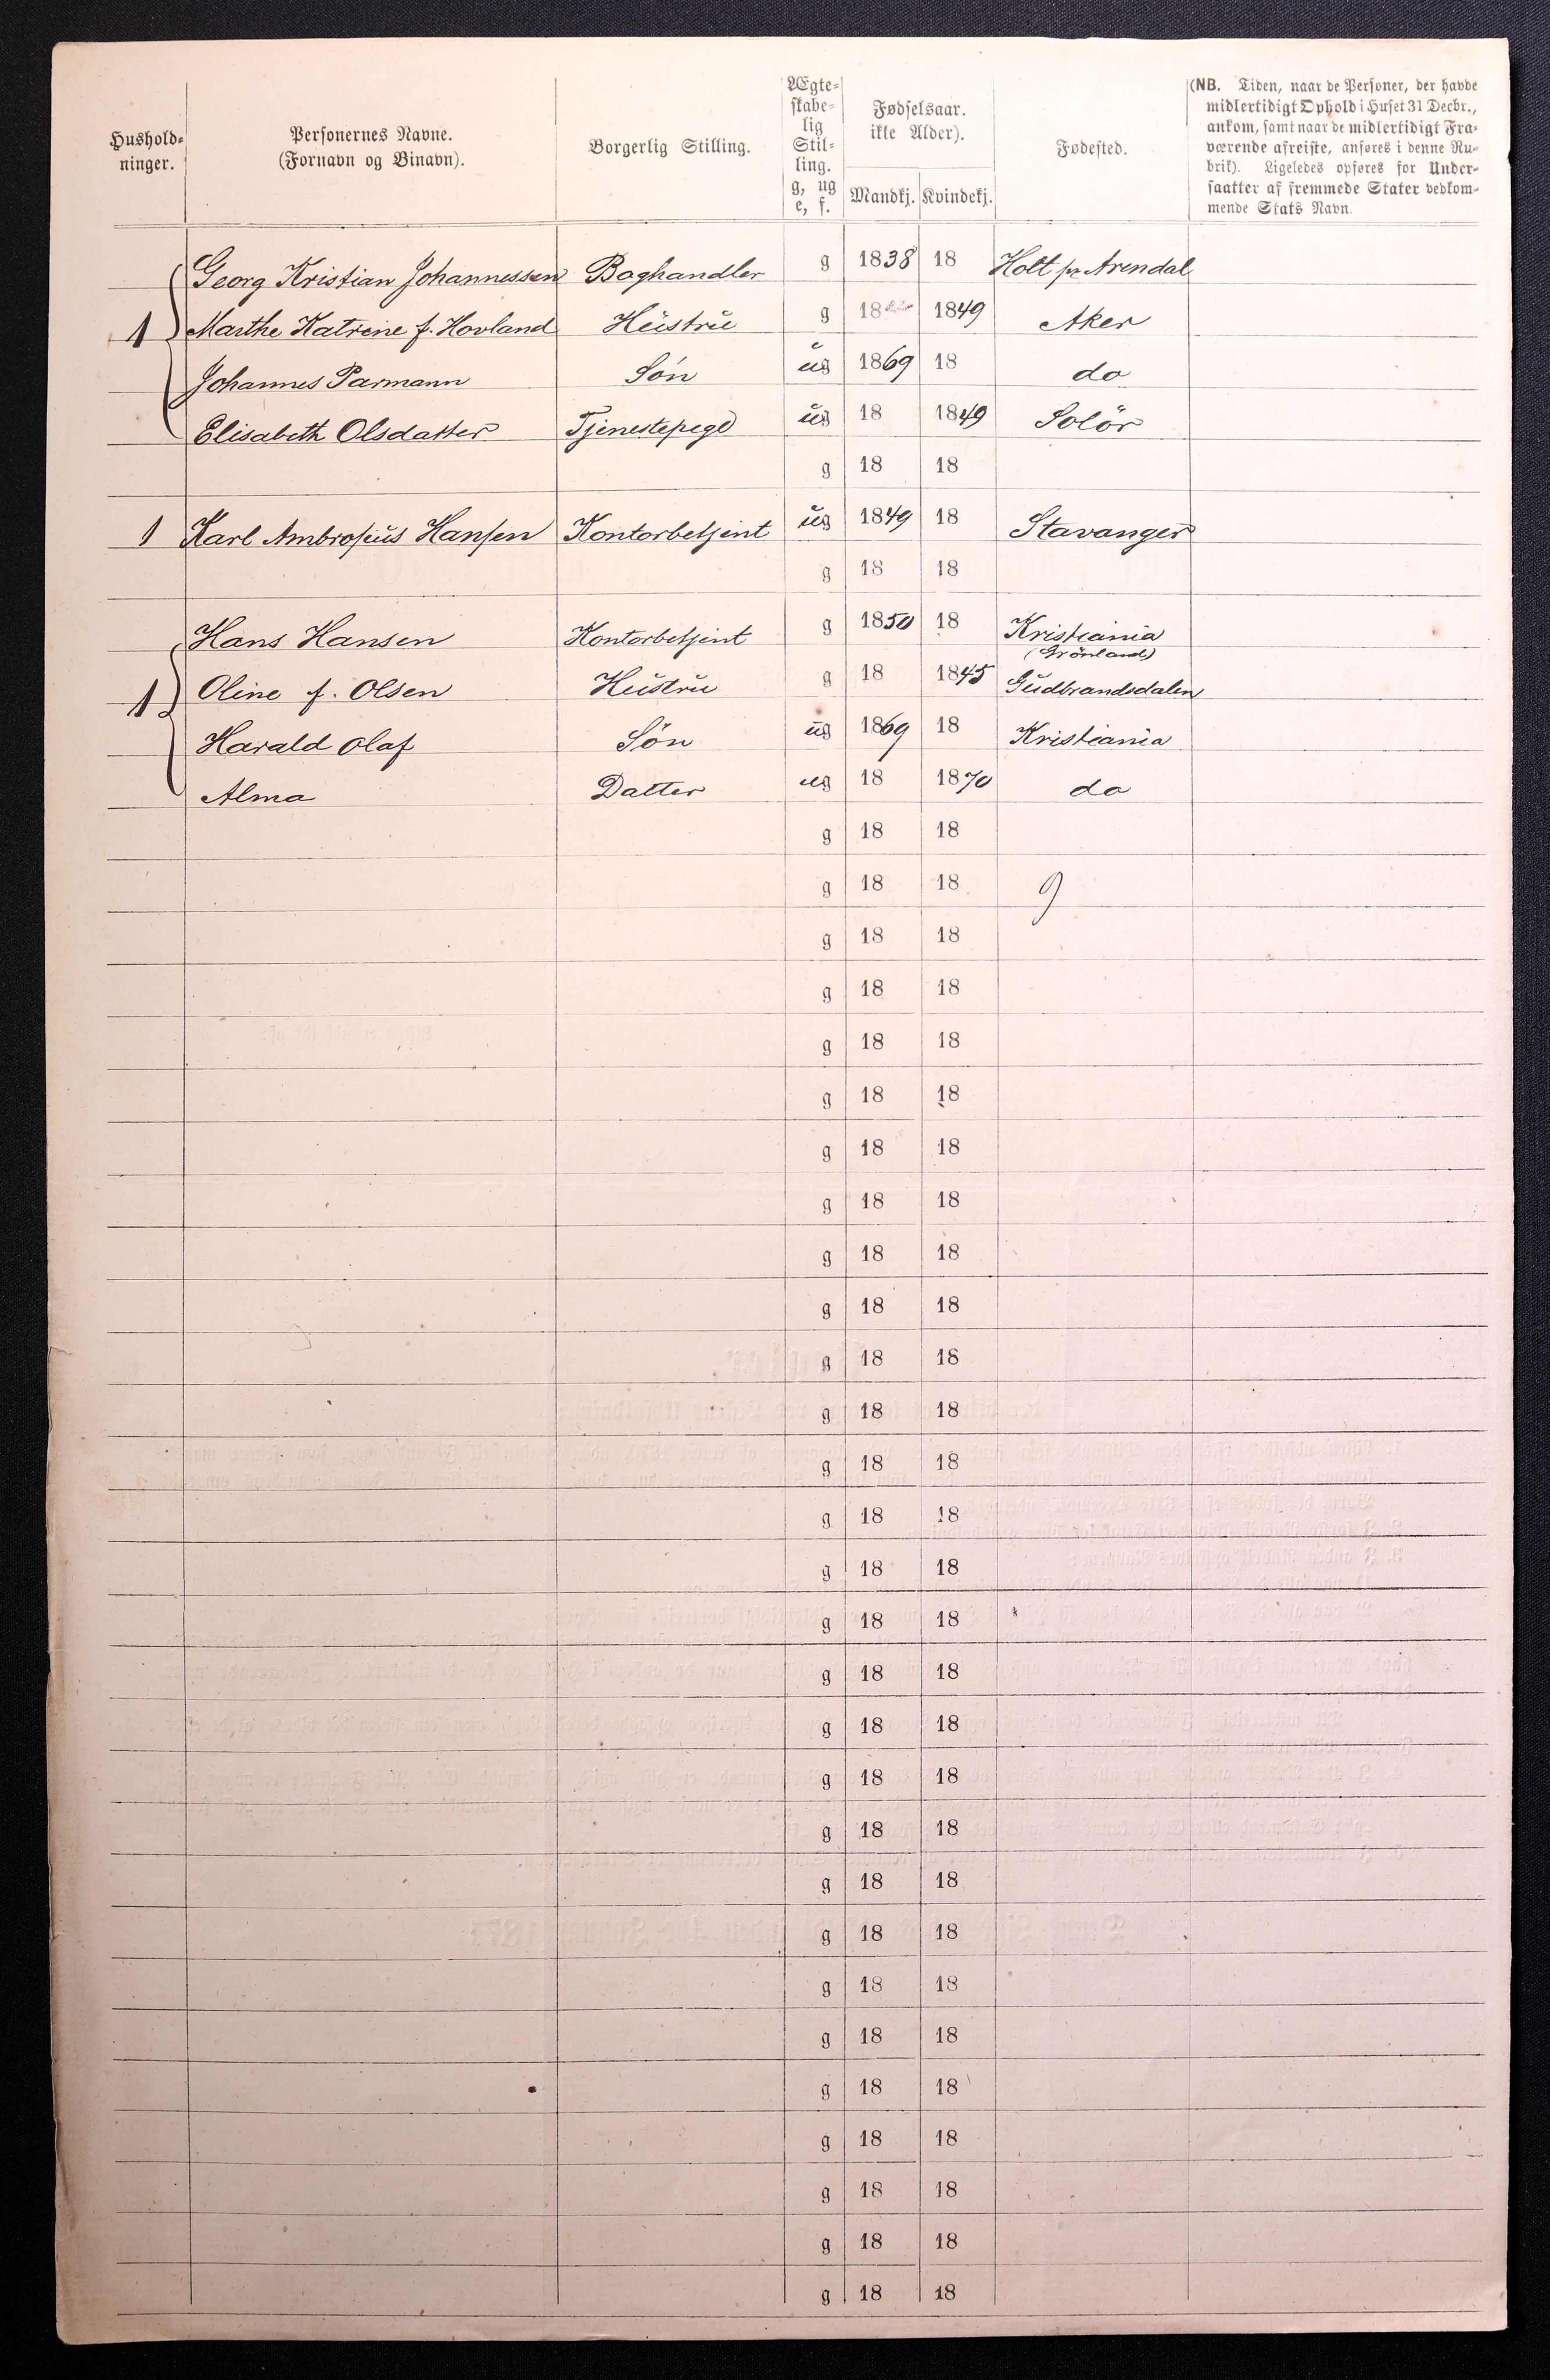 Hushold-
ninger.
Personernes Navne.
(Fornavn og Binavn).
Borgerlig Stilling.
Ægte-
skabe-
lig
Stil-
ling.
g, ug
e, f.
Fødselsaar.
ikke Alder).
Mandkj. Kvindekj.
Fødested.
(NB. Tiden, naar de Personer, der havde
midlertidigt Ophold i Huset 31 Decbr.,
ankom, samt naar de midlertidigt Fra-
værende afreiste, anføres i denne Ru-
brik). Ligeledes opføres for Under-
saatter af fremmede Stater vedkom-
mende Stats Navn.
Georg Kristian Johannessen Boghandler g 1838 18 Holt pr Arendal
1 Marthe Katrine f. Hovland Hŭstrŭ g 18 1849 Aker
Johannes Parmann Sön ŭg 1869 18 do
Elisabeth Olsdatter Tjenestepige ŭg 18 1849 Solör
g 18 18
1 Karl Ambrosiŭs Hansen Kontorbetjent ŭg 1849 18 Stavanger
g 18 18
Hans Hansen Kontorbetjent g 1850 18 Kristiania
(Grönland)
1 Oline f. Olsen Hŭstrŭ g 18 1845 Gŭdbrandsdalen
Harald Olaf Sön ŭg 1869 18 Kristiania
Alma Datter ug 18 1870 do
g 18 18
g 18 18 9
g 18 18
g 18 18
g 18 18
g 18 18
g 18 18
g 18 18
g 18 18
g 18 18
g 18 18
g 18 18
g 18 18
g 18 18
g 18 18
g 18 18
g 18 18
g 18 18
g 18 18
g 18 18
g 18 18
g 18 18
g 18 18
g 18 18
g 18 18
g 18 18
g 18 18
g 18 18
g 18 18